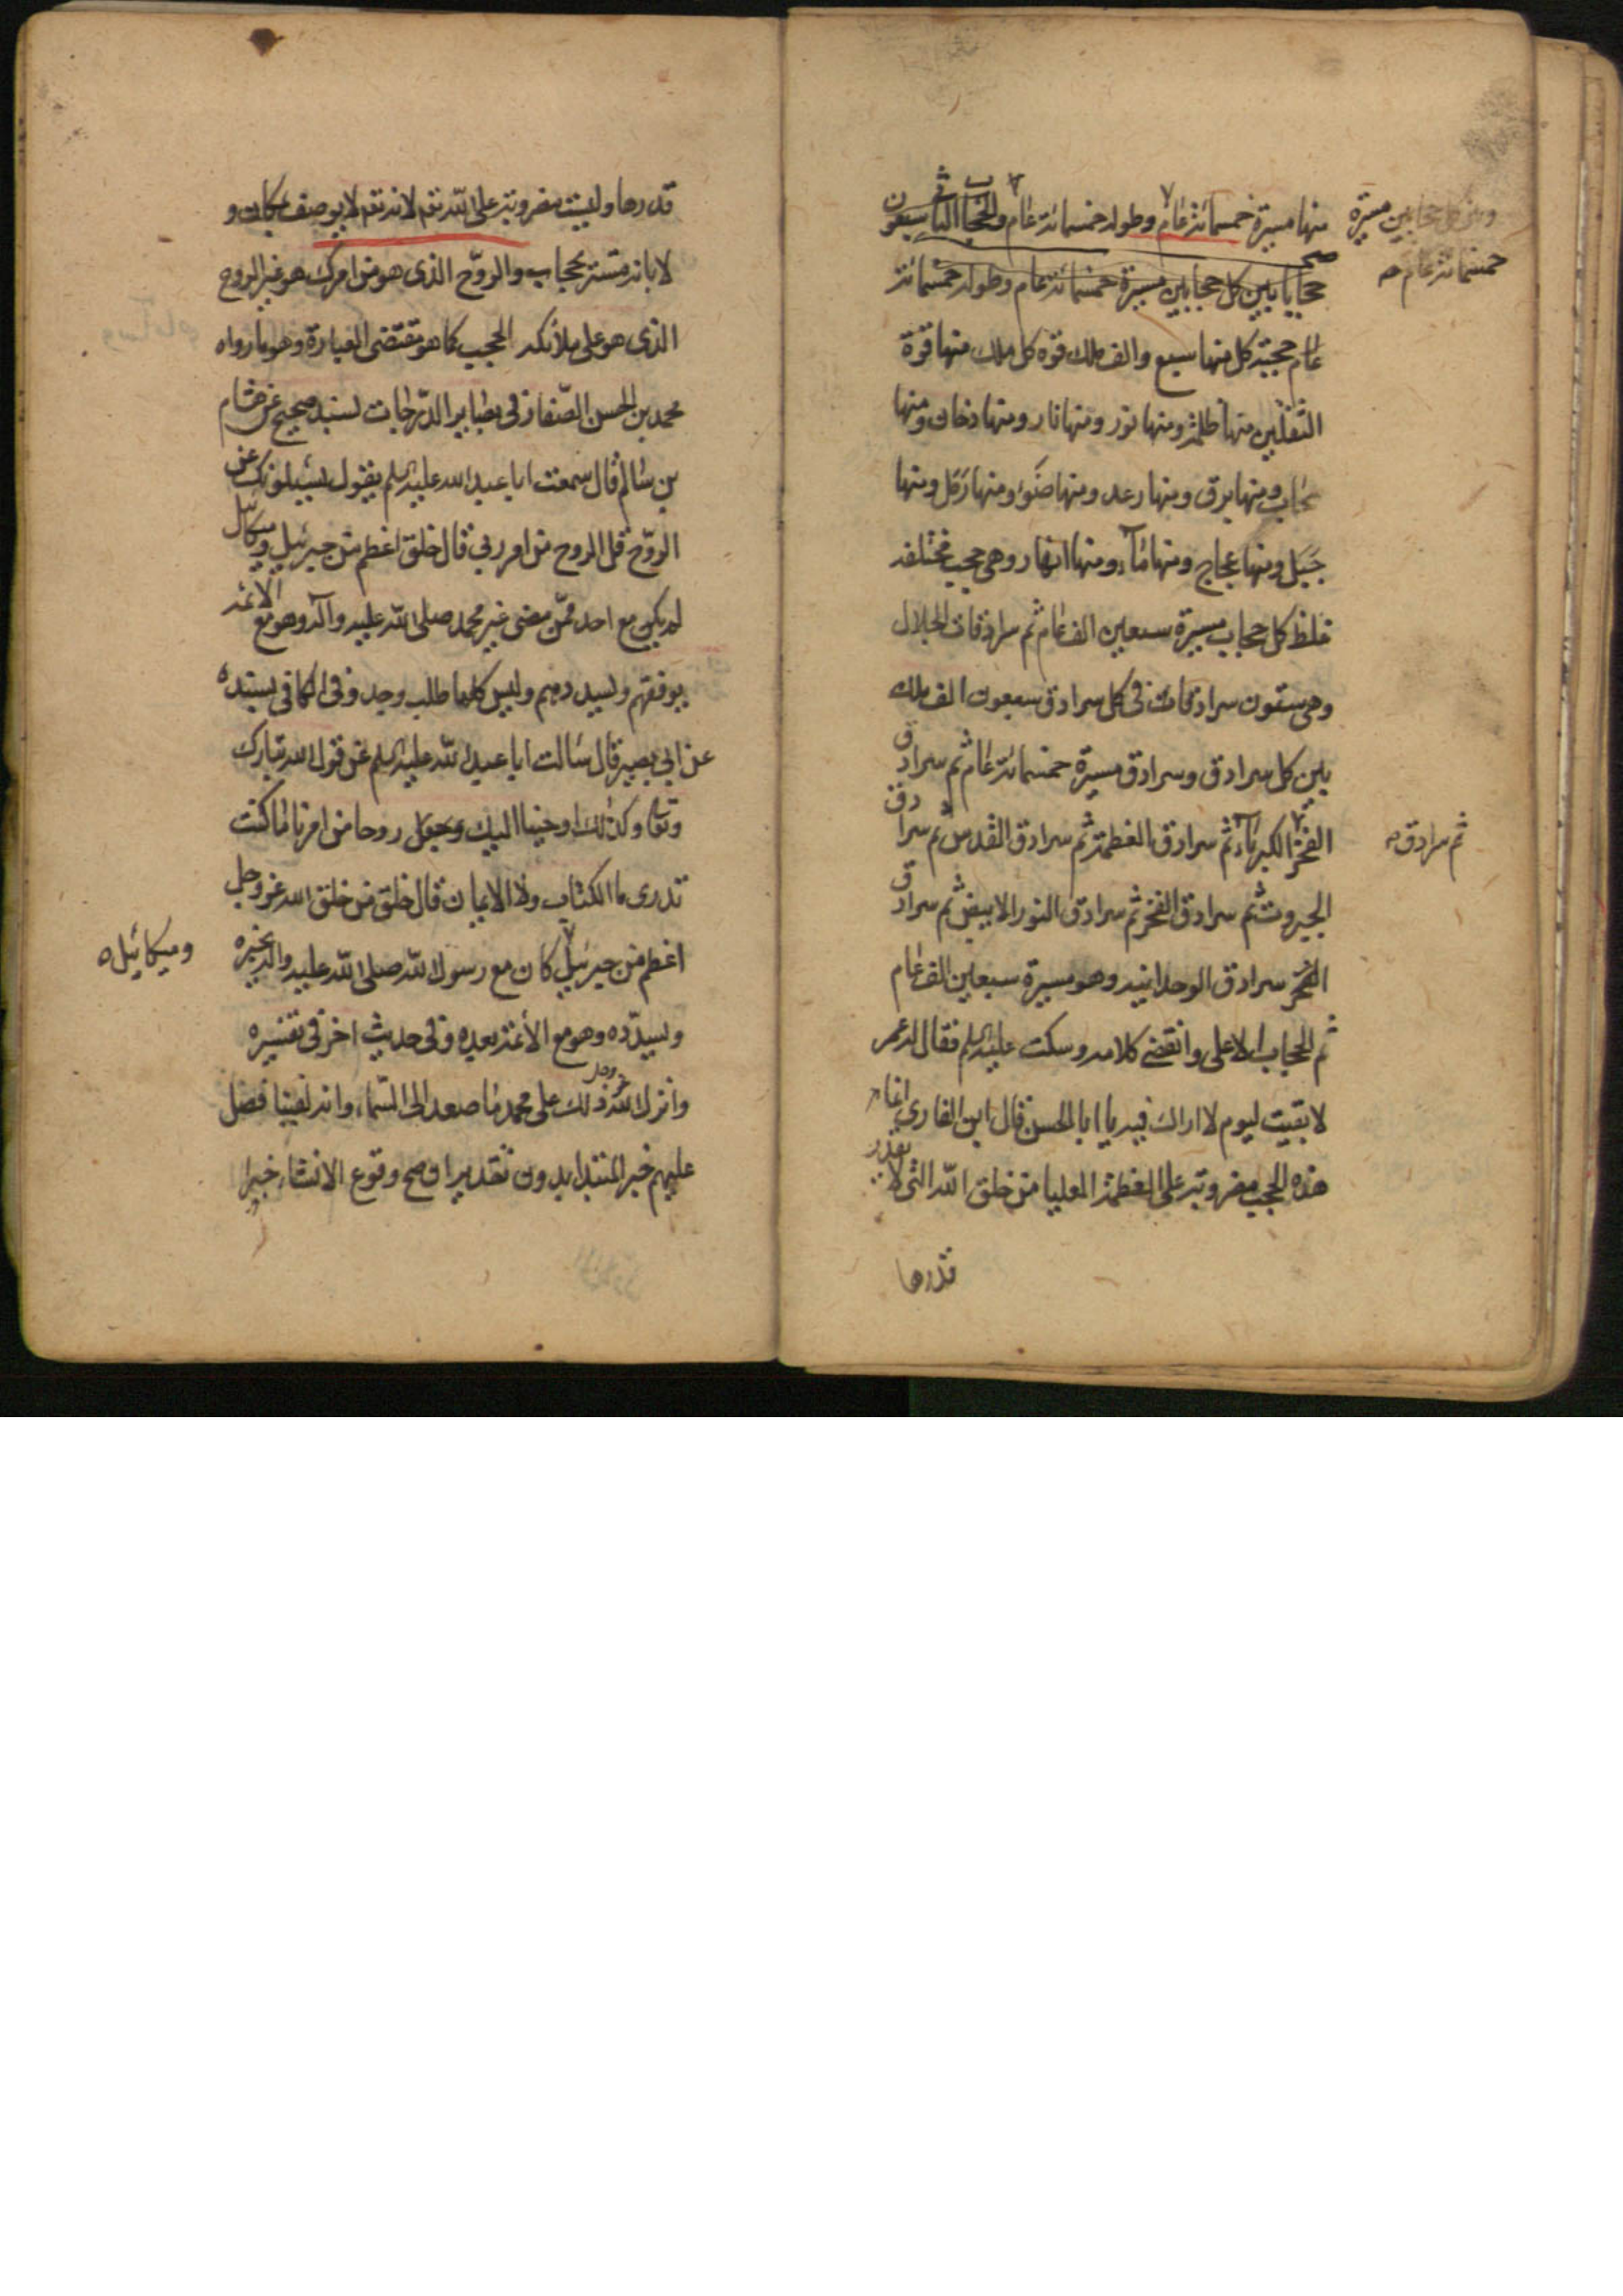 منها مسيرة خمسمائة عام وطوله خمسمائة عام والحجاب الثانى سبعون
ومن حجابين مسيرة
خمسمائة عام صح
حجابا بين كل حجابين مسيرة خمسمائة عام وطوله خمسمائة
عام حجبة كل منها سبعون الف ملك قوة كل ملك منها قوة
الثقلين منها ظلمة ومنها نور ومنها نار ومنها دخان ومنها
سحاب ومنها برق ومنها رعد ومنها ضوء ومنها رمل ومنها
جبل ومنها عجاج ومنها ماء ومنها انهار وهى حجب مختلفه
غلظ كل حجاب مسيرة سبعين الف عام ثم سرادقات الجلال
وهى ستون سرادقات فى كل سرادق سبعون الف ملك
بين كل سرادق وسرادق مسيرة خمسمائة عام ثم سرادق
الكبرياء ثم سرادق العظمة ثم سرادق القدس ثم سرادق
ثم سرادق
الجبروت ثم سرادق الفخر ثم سرادق النور الابيض ثم سرادق
سرادق الوحدانيه وهو مسيرة سبعين الف عام
ثم الحجاب الاعلى وانقضى كلامه وسكت عليه السلم فقال له عمر
لا بقيت ليوم لا اراك فيه يا ابا الحسن قال ابن الفارى
هذه الحجب مضروبة على العظمة العليا من خلق الله التى لا يقدر
قدرها
قدرها وليست مضروبة على الله تعم لانه تعم لا يوصف بمكان و
لا بانه مستتر بحجاب والروح الذى هو من امرك هو غير الروح
الذى هو على ملائكة الحجب كما هو مقتضى العبارة وهو ما رواه
محمد بن الحسن الصفار فى بصاير الدرجات بسند صحيح عن هشام
بن سالم قال سمعت ابا عبد الله عليه السلم يقول يسئلونك عن
الروح قل الروح من امر ربى قال خلق اعظم من جبرئيل وميكائيل
لم يكن مع احد ممن مضى غير محمد صلى الله عليه وآله وهو مع الائمة
يوفقهم ويسددهم وليس كلما طلب وجد وفى الكافى بسنده
عن ابى بصير قال سالت ابا عبد الله عليه السلم عن قول الله تبارك
وتعالى وكذلك اوحينا اليك روحا من امرنا ما كنت
تدرى ما الكتاب ولا الايمان قال خلق من خلق الله عز وجل
اعظم من جبرئيل كان مع رسول الله صلى الله عليه وآله يخبره
وميكائيل
ويسدده وهو مع الأئمة بعده وفى حديث اخر فى تفسيره
وانزل الله عز وجل ذلك على محمد ما صعد الى السماء وانه لفينا فصل
عليهم خبر المبتدا بدون تقدير اوصح وقوع الانشاء خبرا